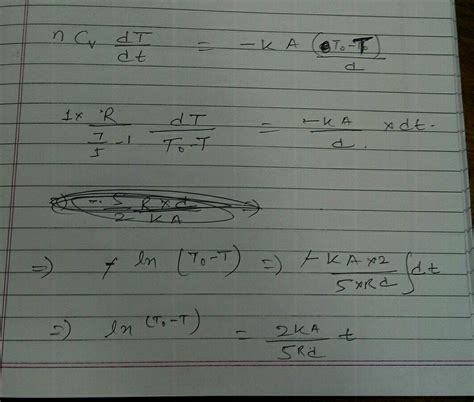 n Cv dT/dt = -KA (T₀-T)/d
1× R/(7/5 -1) dT/(T₀-T) = -KA/d. × dt.
-5/2 R×d/KA
⇒ ≠ ln (T₀-T) ⇒ ≠ KA×2/5×Rd ∫dt
⇒ ln (T₀-T) = 2KA/5Rd t